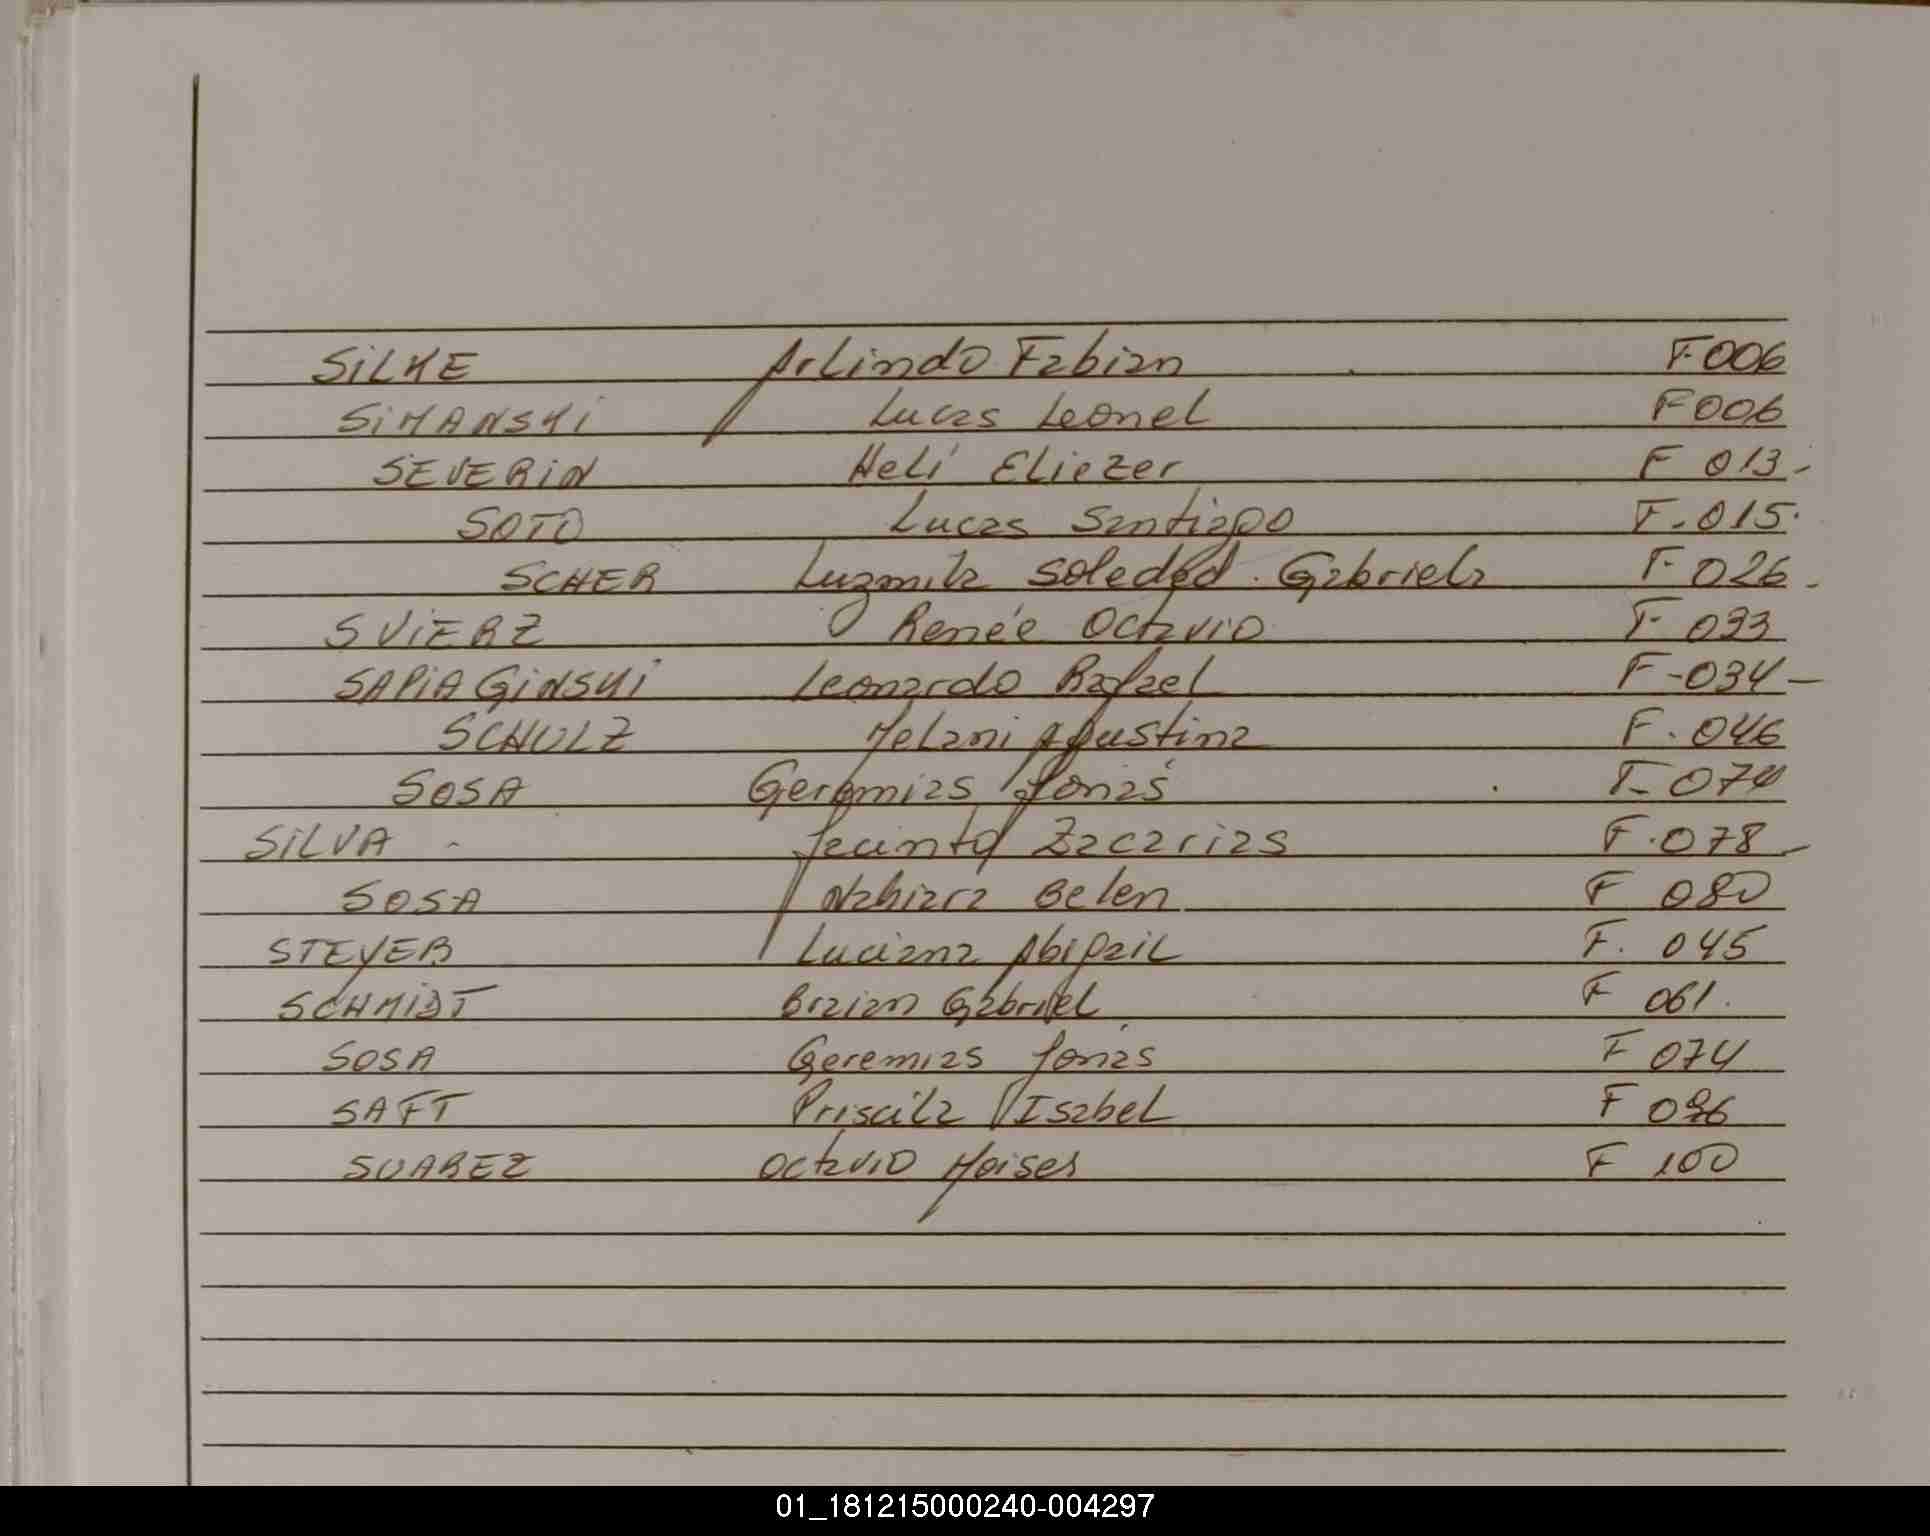 SILKE Arlindo Fabian F-006
SIMANSKI Lucas Leonel F006
SEVERIN Helí Eliezer F 013-
SOTO Lucas Santiago F.015.
SCHER Luzmila Soledad. Gabriela F- 026.
SVIERZ Renée Octavio F- 033
SAPIAGINSKI Leonardo Rafael F-034-
SCHULZ Melani Agustina F. 046
SOSA Geremias Jonás F- 074
SILVA - Jacinto Zacarias F.078-
SOSA Nahiara Belen F 080
STEYER Luciana Abigail F. 045
SCHMIDT Braian Gabriel F 061.
SOSA Geremias Jonás F 074
SAFT Priscila Isabel F
SUAREZ Octavio Moises F 100
01_181215000240-004297